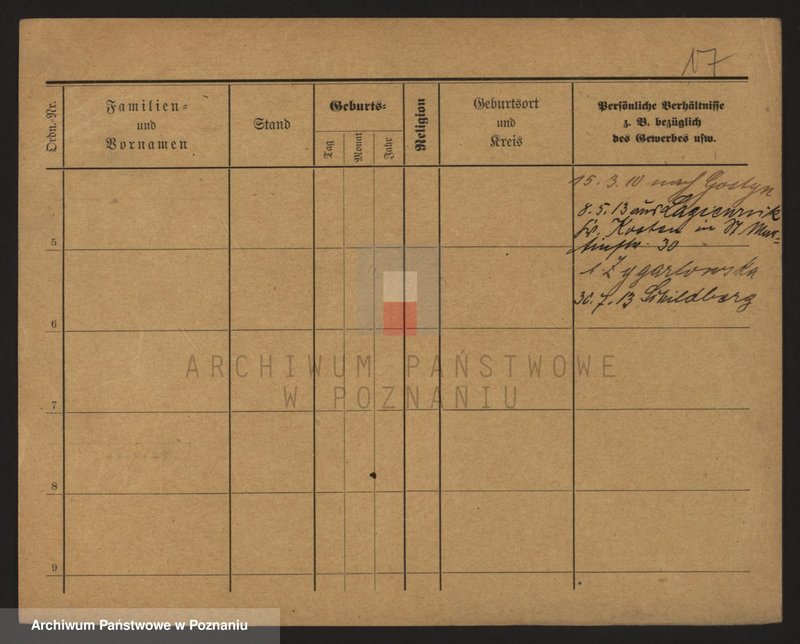 17
Ordn.-Nr.
Familien-
und
Vornamen
Stand
Geburts-
Tag
Monat
Jahr
Religion
Geburtsort
und
Kreis
Persönliche Verhältnisse
z. B. bezüglich
des Gewerbes usw.
15. 3. 10 nach Gostyn
8. 5. 13 aus Lagiewnik
Kr. Kosten in St. Mar-
tinstr. 30
b Zygarlowska
30. 7. 13 Schildberg
5
6
7
8
9
ARCHIWUM PAŃSTWOWE
W POZNANIU
Archiwum Państwowe w Poznaniu